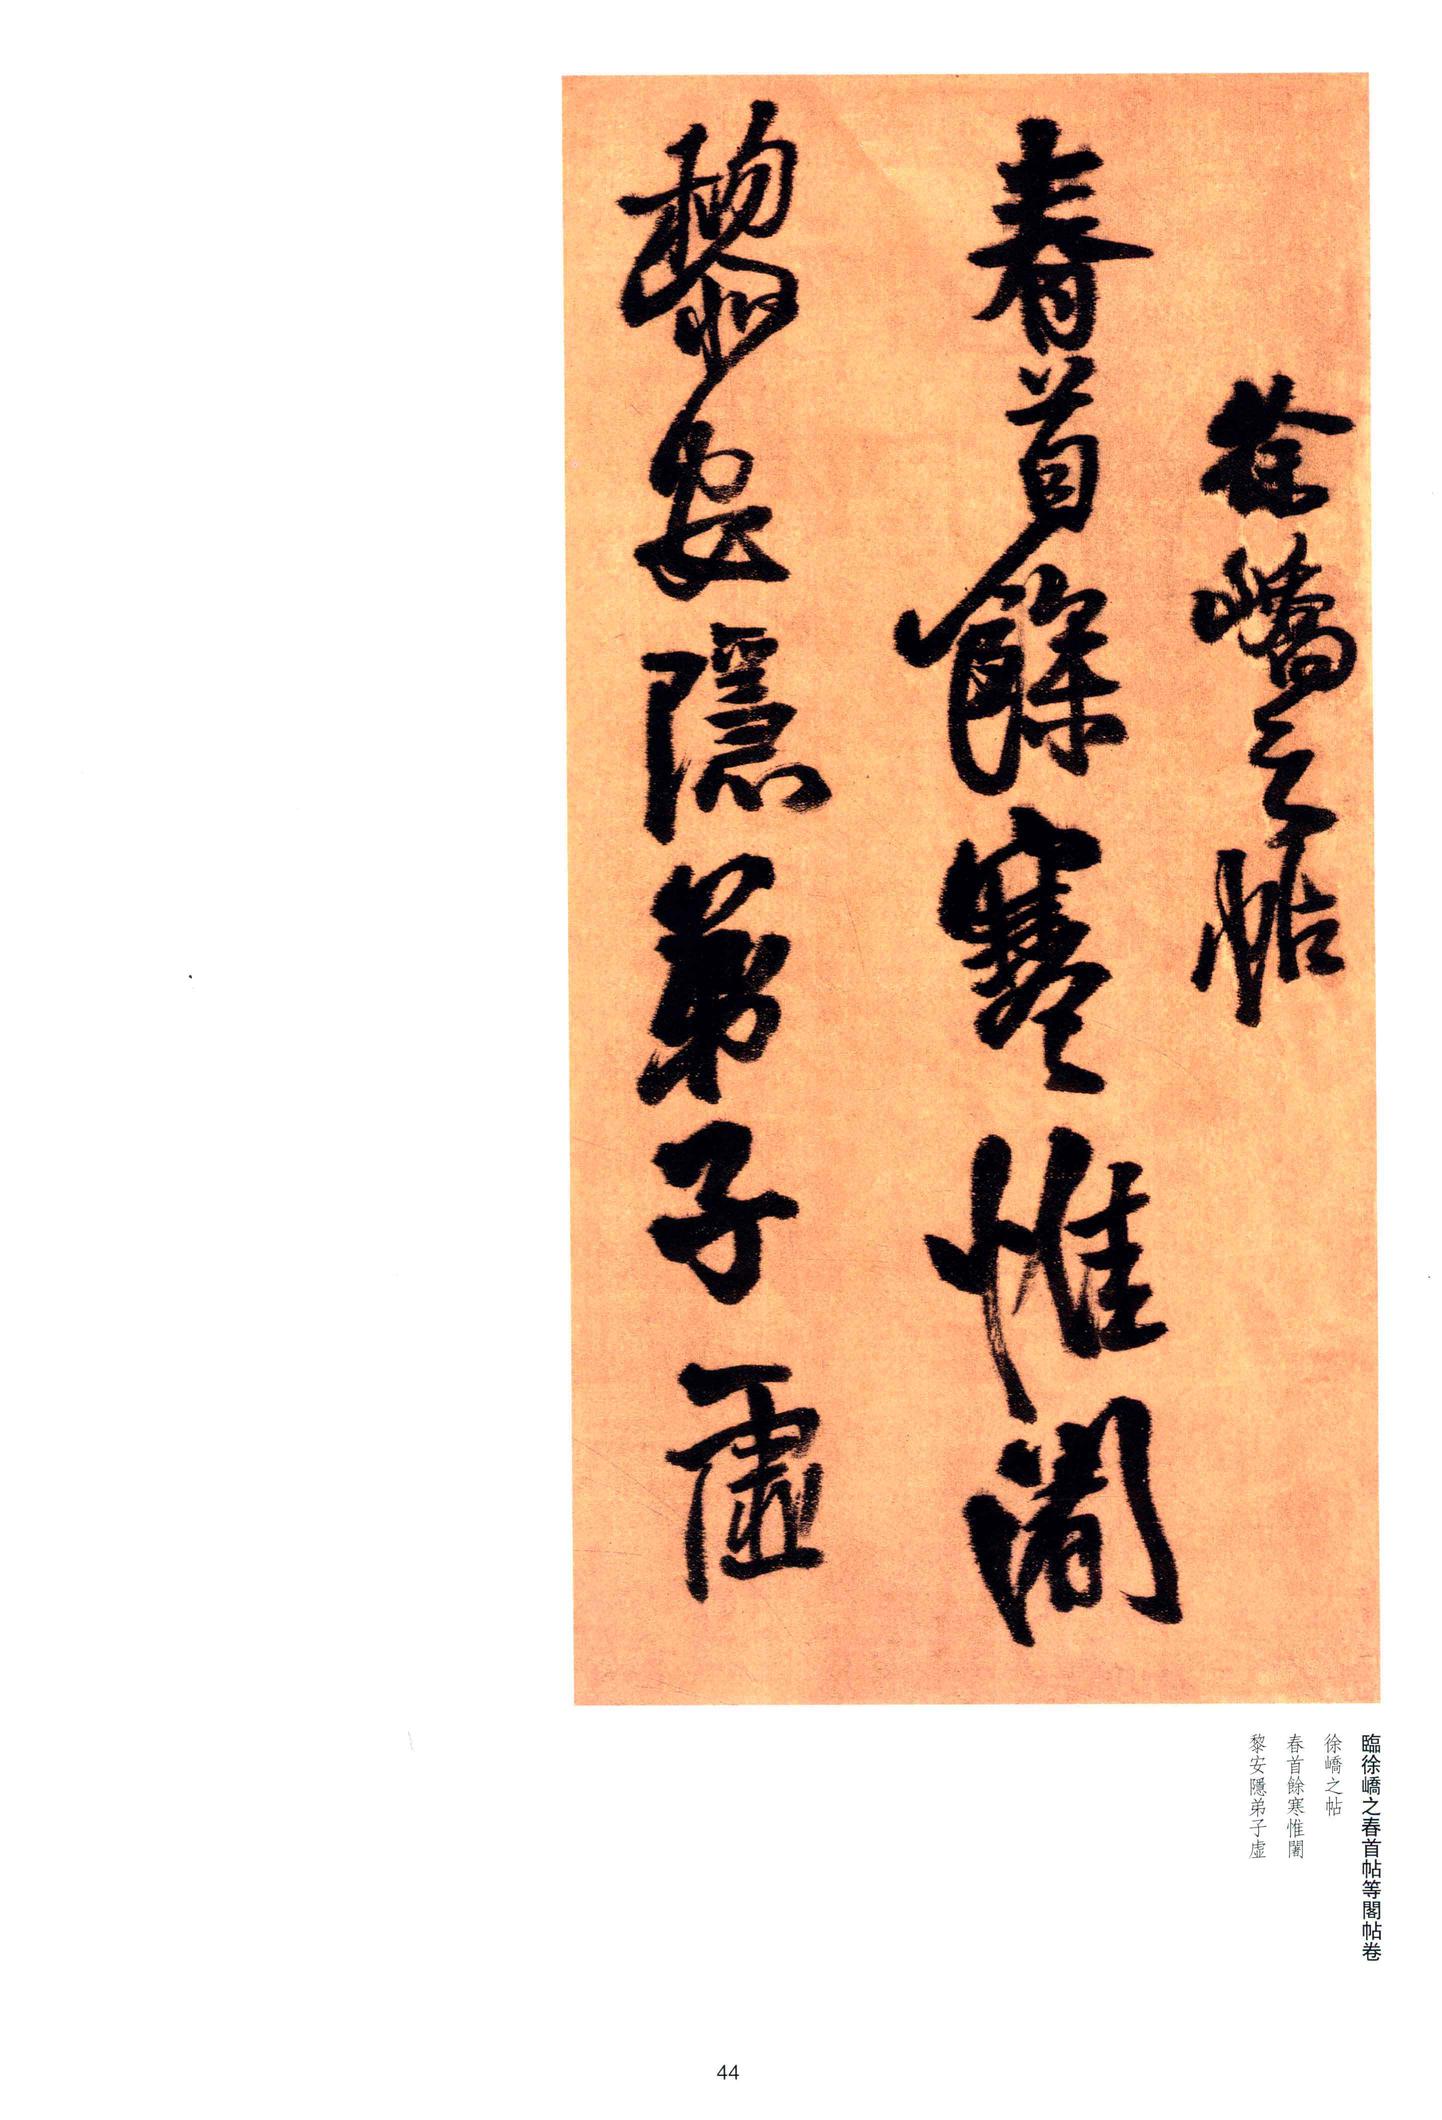 徐嶠之帖
春首餘寒惟闍
黎安隱弟子虛
臨徐嶠之春首帖等閣帖卷
徐嶠之帖
春首餘寒惟闍
黎安隱弟子虛
44